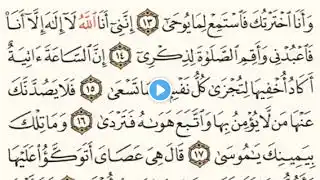 وَأَنَا ٱخْتَرْتُكَ فَٱسْتَمِعْ لِمَا يُوحَىٰٓ ١٣ إِنَّنِىٓ أَنَا ٱللَّهُ لَآ إِلَٰهَ إِلَّآ أَنَا۠
فَٱعْبُدْنِى وَأَقِمِ ٱلصَّلَوٰةَ لِذِكْرِىٓ ١٤ إِنَّ ٱلسَّاعَةَ ءَاتِيَةٌ
أَكَادُ أُخْفِيهَا لِتُجْزَىٰ كُلُّ نَفْسٍۭ بِمَا تَسْعَىٰ ١٥ فَلَا يَصُدَّنَّكَ
عَنْهَا مَن لَّا يُؤْمِنُ بِهَا وَٱتَّبَعَ هَوَىٰهُ فَتَرْدَىٰ ١٦ وَمَا تِلْكَ
بِيَمِينِكَ يَٰمُوسَىٰ ١٧ قَالَ هِىَ عَصَاىَ أَتَوَكَّؤُا۟ عَلَيْهَا